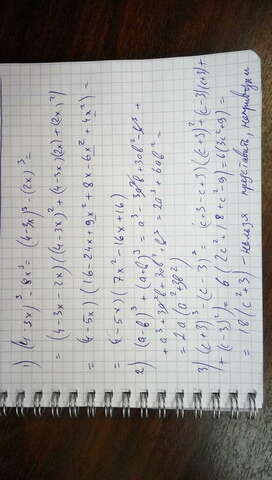 1) (4-3x)³ - 8x³ = (4-3x)³ - (2x)³ =
= (4-3x-2x)((4-3x)² + (4-3x)(2x) + (2x)²)
= (4-5x)(16-24x+9x²+8x-6x²+4x²) =
= (4-5x)(7x²-16x+16)
2) (a-b)³ + (a+b)³ = a³ - 3a²b + 3ab² - b³ +
+ a³ + 3a²b + 3ab² + b³ = 2a³ + 6ab² =
= 2a(a²+3b²)
3) (c+3)³ - (c-3)³ = (c+3-c+3)((c+3)² + (c-3)(c+3) +
+ (c-3)²) = 6(2c²+18+c²-9) = 6(3c²+9) =
= 18(c²+3) - нельзя представить,